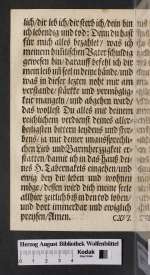 lich/dir leb ich/dir sterb ich/dein bin
ich lebendig und tod: Dann du hast
für mich alles bezahlet / was ich
meinem himmlischen Vater schuldig
gewesen bin / darauff befehl ich dir
mein leib uñ seel in deine hände / und
was in dieser letzten noht mir am
verstande / stärcke und vermöglig-
keit mangeln / und abgehen word /
das wollest Du alles mit deinem
reichlichem verdienst deines aller-
heiligsten bittern leydens und ster-
bens / ja mit deiner unaussprechli-
chen Lieb und Barmhertzigkeit er-
statten / damit ich in das Hauß dei-
nes H. Tabernakels eingehen / und
ewig bey dir leben und wohnen
möge / dessen wird dich meine seele
allhier zeitlich biß in den tod loben /
und dort immerdar und ewiglich
preisen / Amen.
Herzog August Bibliothek Wolfenbüttel